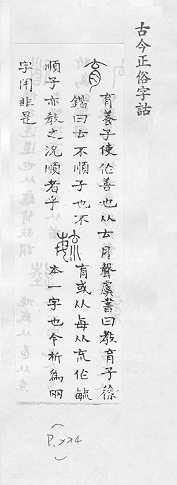 古今正俗字詁
育
育養子使作善也从𠫓月聲虞書曰教育子徐
鍇曰𠫓不順子也不
順子亦教之況順者乎
毓
育或从每从㐬作毓
本一字也今析為兩
字用非是
(P.224)